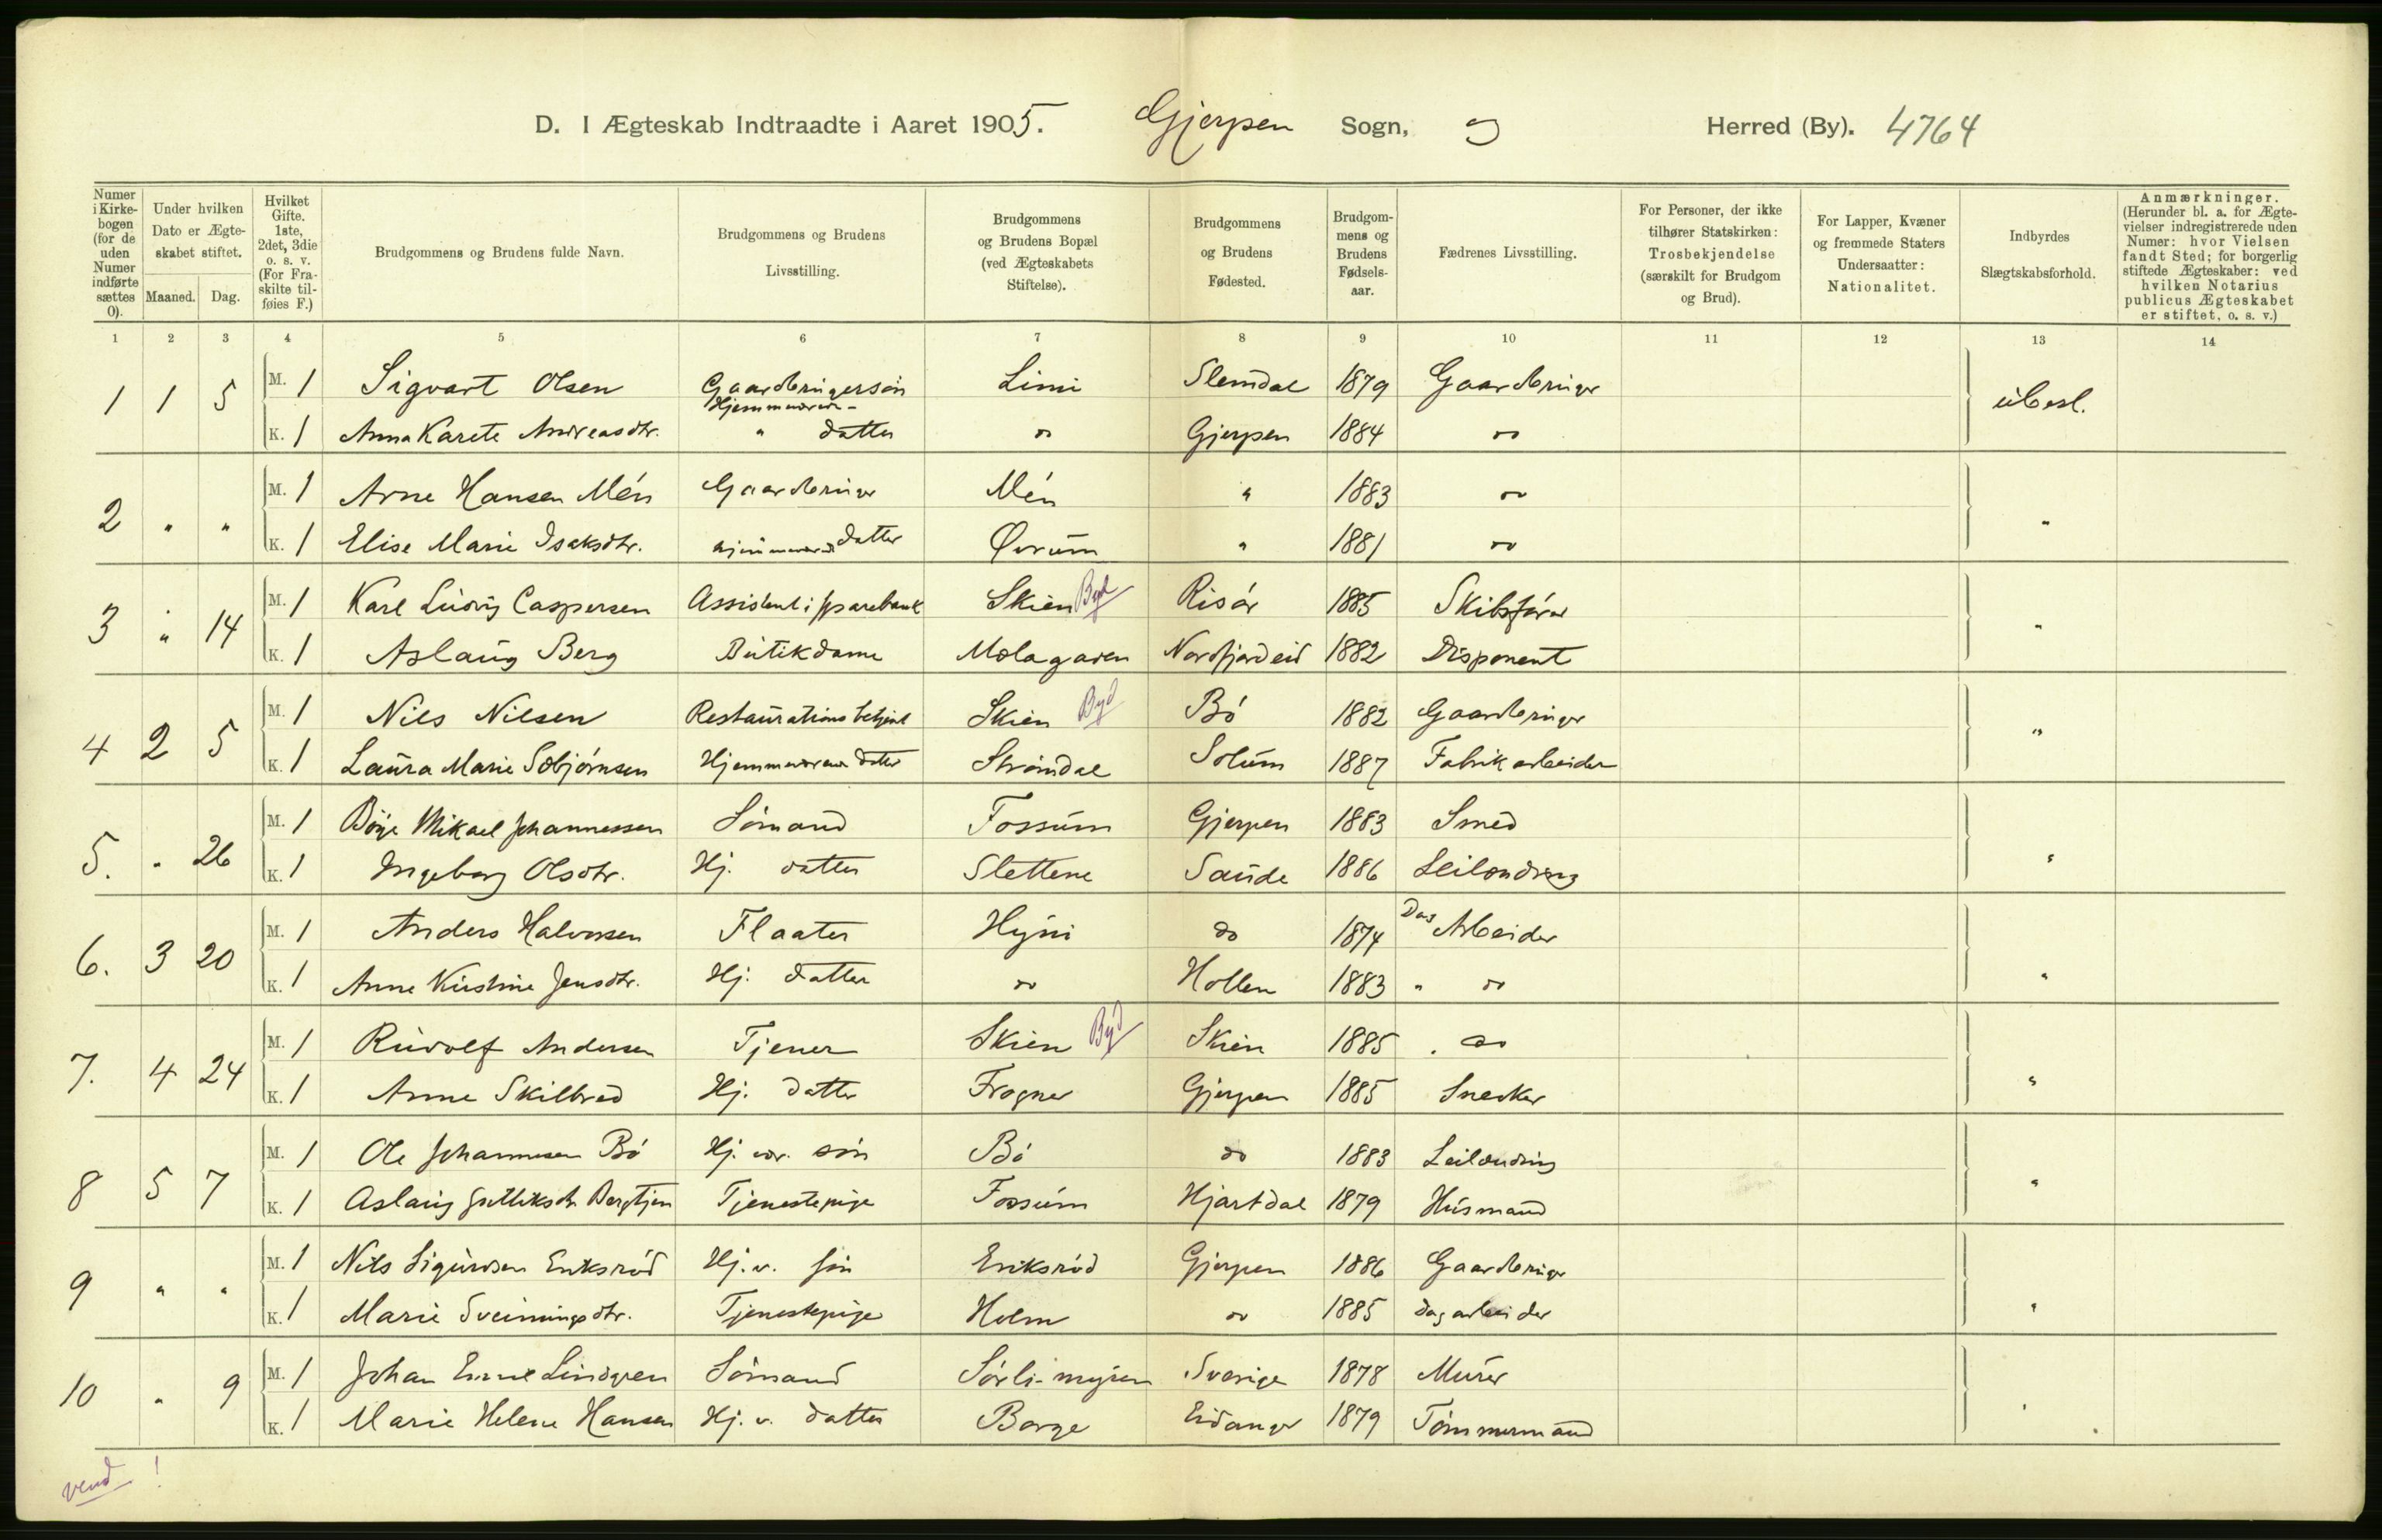 D. I Ægteskab Indtraadte i Aaret 1905. Gjerpen Sogn, og Herred (By). 4764
Numer i Kirkebogen (for de uden Numer indførte sættes 0).
Under hvilken Dato er Ægteskabet stiftet.
Maaned. Dag.
Hvilket Gifte. 1ste, 2det, 3die o. s. v. (For Fraskilte tilføies F.)
Brudgommens og Brudens fulde Navn.
Brudgommens og Brudens Livsstilling.
Brudgommens og Brudens Bopæl (ved Ægteskabets Stiftelse).
Brudgommens og Brudens Fødested.
Brudgommens og Brudens Fødselsaar.
Fædrenes Livsstilling.
For Personer, der ikke tilhører Statskirken: Trosbekjendelse (særskilt for Brudgom og Brud).
For Lapper, Kvæner og fremmede Staters Undersaatter: Nationalitet.
Indbyrdes Slægtskabsforhold.
Anmærkninger. (Herunder bl. a. for Ægtevielser indregistrerede uden Numer: hvor Vielsen fandt Sted; for borgerlig stiftede Ægteskaber: ved hvilken Notarius publicus Ægteskabet er stiftet, o. s. v.)
1 2 3 4 5 6 7 8 9 10 11 12 13 14
1 1 5 M. 1 Sigvart Olsen Gaardbrugersøn Limi Slemdal 1879 Gaardbruger ubesl.
K. 1 Anna Karete Andreasdtr. Hjemmeværen- " datter do Gjerpen 1884 do
2 " " M. 1 Arne Hansen Mén Gaardbruger Mén " 1883 do "
K. 1 Elise Marie Isaksdtr. hjemmeværende datter Øvrum " 1881 do
3 " 14 M. 1 Karl Ludvig Caspersen Assistent i sparebank Skien Byd Risør 1885 Skibsfører "
K. 1 Aslaug Berg Butikdame Mælagaren Nordfjordeid 1882 Disponent
4 2 5 M. 1 Nils Nilsen Restaurationsbetjent Skien Byd Bø 1882 Gaardbruger "
K. 1 Laura Marie Sæbjørnsen Hjemmeværende datter Strømdal Solum 1887 Fabrikarbeider
5. " 26 M. 1 Börje Mikael Johannessen Sømand Fossum Gjerpen 1883 Smed "
K. 1 Ingeborg Olsdtr. Hj. datter Slettene Saude 1886 Leilænding
6. 3 20 M. 1 Anders Halvorsen Flaater Hyni do 1874 Dag Arbeider "
K. 1 Anne Kirstine Jensdtr. Hj. datter do Hollen 1883 " do
7. 4 24 M. 1 Rudolf Andersen Tjener Skien Byd Skien 1885 " do "
K. 1 Anne Skilbred Hj. datter Frogner Gjerpen 1885 Snedker
8 5 7 M. 1 Ole Johannesen Bø Hj. vær. søn Bø do 1883 Leilænding "
K. 1 Aslaug Gutliksdtr Bergtjen Tjenestepige Fossum Hjartdal 1879 Husmand
9 " " M. 1 Nils Sigurdsen Eriksrød Hj. v. søn Eriksrød Gjerpen 1886 Gaardbruger "
K. 1 Marie Sveinungsdtr. Tjenestepige Holm do 1885 dagarbeider
10 " 9 M. 1 Johan Emil Lindgren Sømand Sørli-myren Sverige 1878 Murer "
K. 1 Marie Helene Hansen Hj. v. datter Borge Eidanger 1879 Tømmermand
vend!